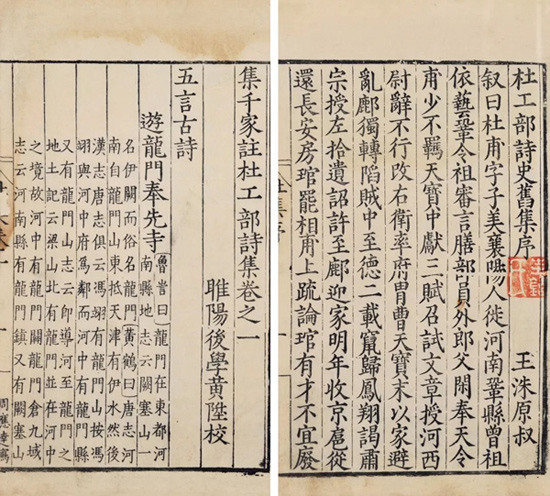 杜工部詩史舊集序
王洙原叔
叙曰杜甫字子美襄陽人徙河南鞏縣曾祖
依藝鞏令祖審言膳部員外郎父閑奉天令
甫少不羈天寶中獻三賦召試文章授河西
尉辭不行改右衛率府胄曹天寶末以家避
亂鄜獨轉陷賊中至德二載竄歸鳳翔謁肅
宗授左拾遺詔許至鄜迎家明年收京扈從
還長安房琯罷相甫上疏論琯有才不宜廢
集千家註杜工部詩集卷之一
睢陽後學黃陞校
五言古詩
遊龍門奉先寺
魯訔曰龍門在東都河
南縣地志云闕塞山一
名伊闕而俗名龍門黃鶴曰唐志河
南自龍門山東抵天津有伊水然後
漢志唐志俱云馮翊有龍門山按馮
翊與河中府爲鄰而河中有龍門縣
又有龍門山志云即導河至龍門之
地土記云梁山北有龍門並在河中
之境故河中有龍門關龍門倉九域
志云河南縣有龍門鎮又有闕塞山